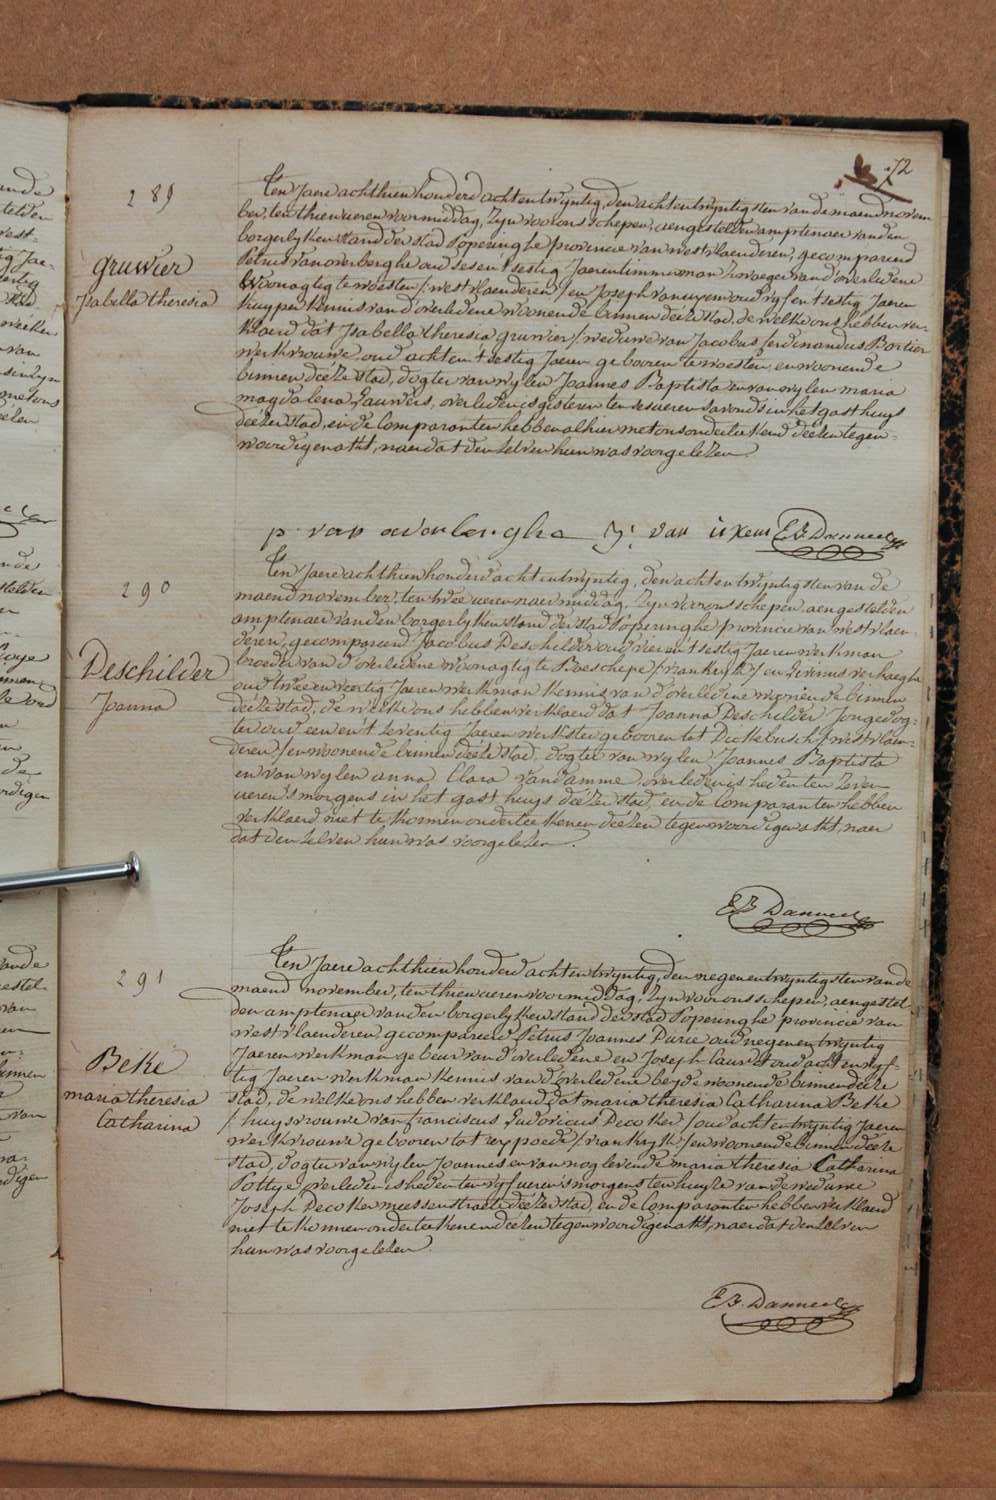 72
289
gruwier
Isabella theresia
Ten Jaere achthien honderd acht en twyntig, den acht en twyntigsten van de maend novem
ber, ten thien ueren voormiddag, Zyn voor ons schepen, aengestelden amptenaer van den
borgerlyken stand der stad Poperinghe provincie van westvlaenderen, gecompareerd
Petrus van overberghe oud ses en t'sestig Jaeren timmerman zwaeger van d'overledene
woonagtig te woesten /:westvlaenderen:/ en Joseph van uxem oud vyf en t'sestig Jaeren
kuyper kennis van d'overledene woonende binnen deeze stad, de welke ons hebben ver-
klaerd dat Isabella theresia gruwier /:weduwe van Jacobus ferdinandus Bortier
werkvrouwe oud acht en t'sestig Jaeren gebooren te woesten, en woonende
binnen deeze stad, dogter van wylen Joannes Baptista en van wylen maria
magdalena Lauweis, overleden is gisteren ten ses ueren s'avonds in het gasthuys
deézer stad, en de Comparanten hebben alhier met ons onderteekend deézen tegen-
woordigen akt, naer dat den zelven hun was voorgelezen.
p. van overberghe J: van uxem E B Danneel
290
Deschilder
Joanna
Ten Jaere achthien honderd acht en twyntig, den acht en twyntigsten van de
maend november, ten twee ueren naermiddag, Zyn voor ons schepen, aengestelden
amptenaer van den borgerlyken stand der stad Poperinghe provincie van westvlaen-
deren, gecompareerd Jacobus Deschilder oud vier en t'sestig Jaeren werkman
broeder van d'overledene woonagtig te Boeschepe /:vrankryk:/ en Livinus verhaeghe
oud twee en veertig Jaeren werkman kennis van d'overledene woonende binnen
deeze stad, de welke ons hebben verklaerd dat Joanna Deschilder Jongedog-
ter oud een en t'seventig Jaeren werkster gebooren tot Dickebusch /:westvlaen-
deren:/ en woonende binnen deeze stad, dogter van wylen Joannes Baptista
en van wylen anna Clara vandamme, overleden is heden ten zeven
ueren s'morgens in het gasthuys deézer stad, en de Comparanten hebben
verklaerd niet te konnen onderteekenen deézen tegenwoordigen akt, naer
dat den zelven hun was voorgelezen.
E B Danneel
291
Beke
maria theresia
Catharina
Ten Jaere achthien honderd acht en twyntig, den negen en twyntigsten van de
maend november, ten thien ueren voormiddag, Zyn voor ons schepen, aengestel-
den amptenaer van den borgerlyken stand der stad Poperinghe provincie van
westvlaenderen, gecompareerd Petrus Joannes Durie oud negen en twyntig
Jaeren werkman gebeur van d'overledene en Joseph Cauret oud acht en vyf-
tig Jaeren werkman kennis van d'overledene beyde woonende binnen deeze
stad, de welke ons hebben verklaerd dat maria theresia Catharina Beke
/:huysvrouwe van franciscus Ludovicus Decoker:/ oud acht en twyntig Jaeren
werkvrouwe gebooren tot reypoede /:vrankryk:/ en woonende binnen deeze
stad, dogter van wylen Joannes en van nog levende maria theresia Catharina
Pottye overleden is heden ten vyf ueren s'morgens ten huyse van de weduwe
Joseph Decoker meessenstraete deézer stad, en de Comparanten hebben verklaerd
niet te konnen onderteekenen deézen tegenwoordigen akt, naer dat den zelven
hun was voorgelezen.
E B. Danneel